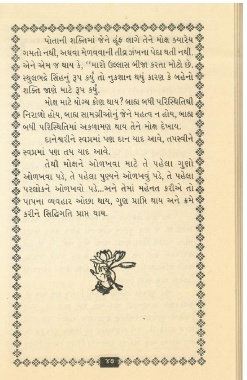 પોતાની શક્તિમાં જેને હૂંફ લાગે તેને મોક્ષ ક્યારેય
ગમતો નથી, અથવા મેળવવાની તીવ્ર ઝંખના પેદા થતી નથી.
એને એમ જ થાય કે, "મારો ઉલ્લાસ બીજા કરતા મોટો છે.
સ્થુલભદ્રે સિંહનું રૂપ કર્યું તો નુકશાન થયું કારણ કે બહેનો
શક્તિ જાણે માટે રૂપ કર્યું.
મોક્ષ માટે યોગ્ય કોણ થાય? બાહ્ય બધી પરિસ્થિતિથી
નિરાળો હોય, બાહ્ય સામગ્રીઓનું જેને મહત્વ ન હોય, બાહ્ય
બધી પરિસ્થિતિમાં અકળામણ થાય તેને મોક્ષ દેખાય.
દાનેશ્વરીને સ્વપ્નમાં પણ દાન યાદ આવે, તપસ્વીને
સ્વપ્નમાં પણ તપ યાદ આવે.
તેથી મોક્ષને ઓળખવા માટે તે પહેલા ગુણો
ઓળખવા પડે, તે પહેલા પુણ્યને ઓળખવું પડે, તે પહેલા
પરલોકને ઓળખવો પડે...અને તેમાં મહેનત કરીએ તો
પાપના વ્યવહાર ઓછા થાય, ગુણ પ્રાપ્તિ થાય અને ક્રમે
કરીને સિદ્ધિગતિ પ્રાપ્ત થાય.